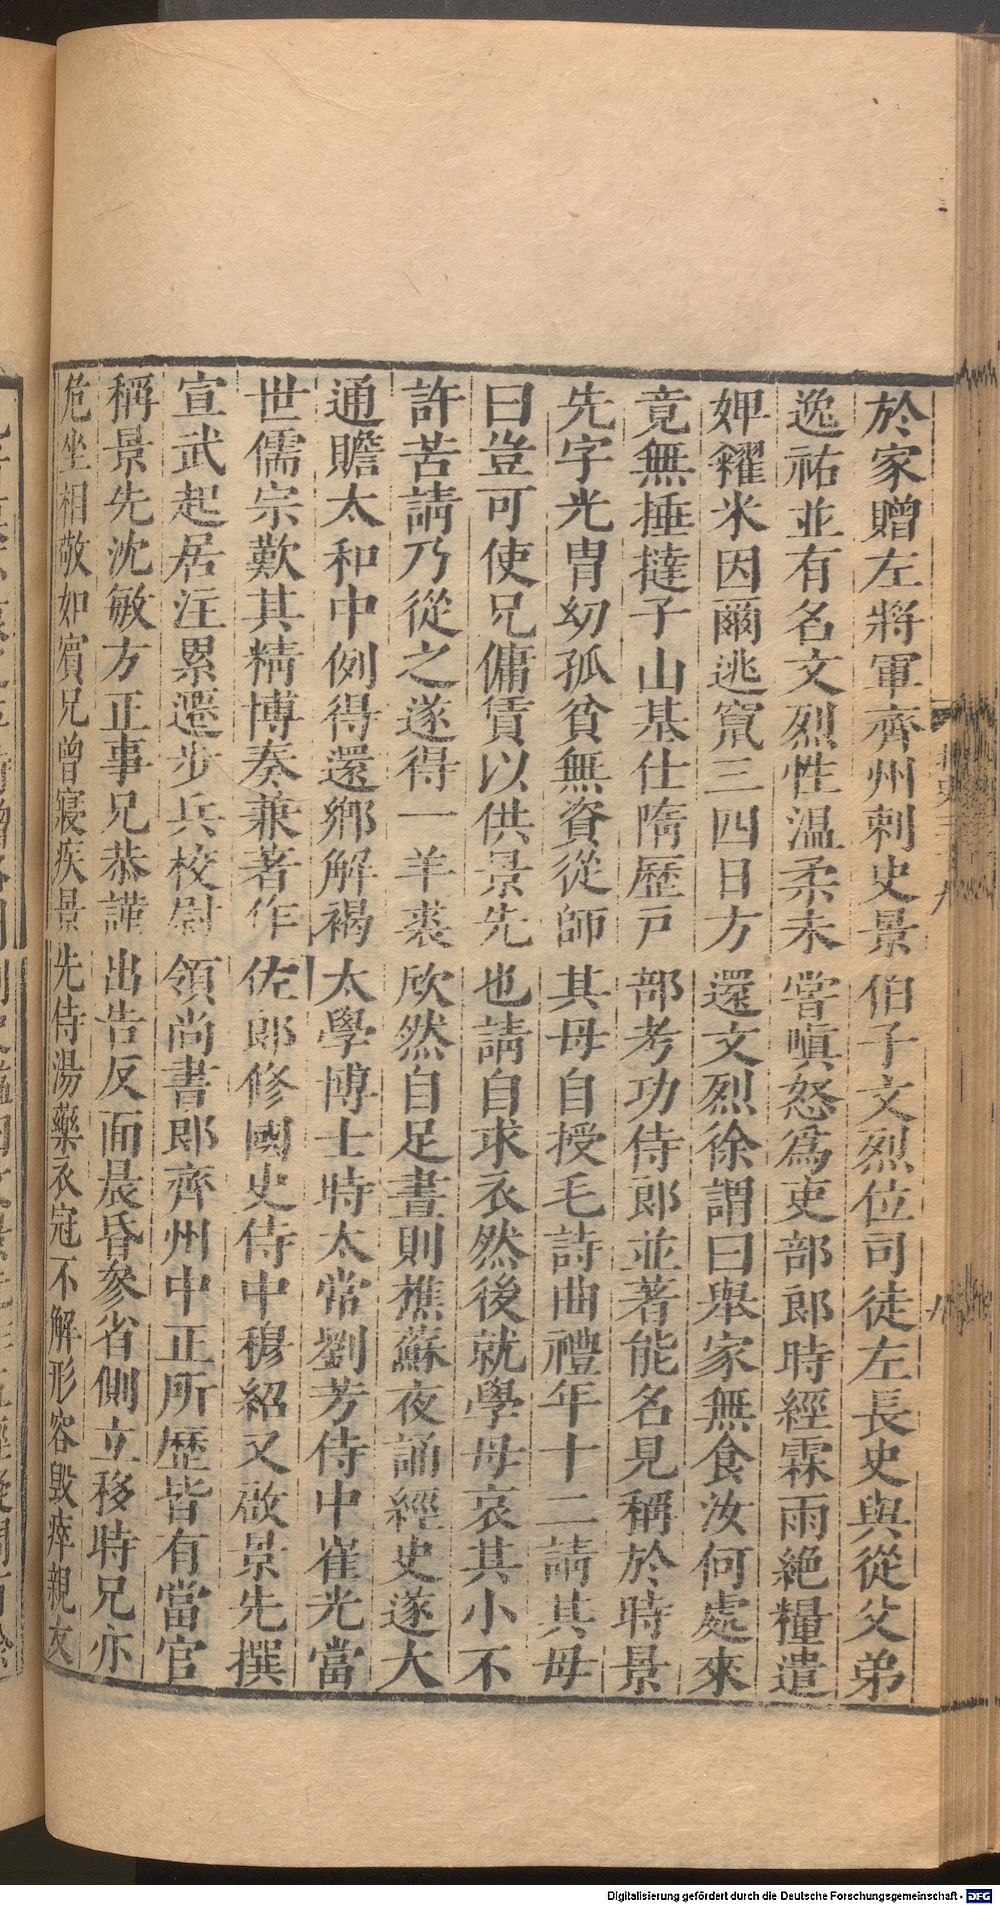 於家贈左將軍齊州刺史景伯子文烈位司徒左長史與從父弟
逸祐並有名文烈性温柔未嘗嗔怒爲吏部郎時經霖雨絶糧遣
婢糴米因爾逃竄三四日方還文烈徐謂曰舉家無食汝何處來
竟無捶撻子山基仕隋歷戸部考功侍郎並著能名見稱於時景
先字光胄幼孤貧無資從師其母自授毛詩曲禮年十二請其母
曰豈可使兄傭賃以供景先也請自求衣然後就學母哀其小不
許苦請乃從之遂得一羊裘欣然自足晝則樵蘇夜誦經史遂大
通贍太和中例得還鄉解褐太學博士時太常劉芳侍中崔光當
世儒宗歎其精博奏兼著作佐郎修國史侍中穆紹又啟景先撰
宣武起居注累遷步兵校尉領尚書郎齊州中正所歷皆有當官
稱景先沈敏方正事兄恭謹出告反面晨昏參省側立移時兄亦
危坐相敬如賓兄曾寢疾景先侍湯藥衣冠不解形容毀瘁親友
Digitalisierung gefördert durch die Deutsche Forschungsgemeinschaft - DFG